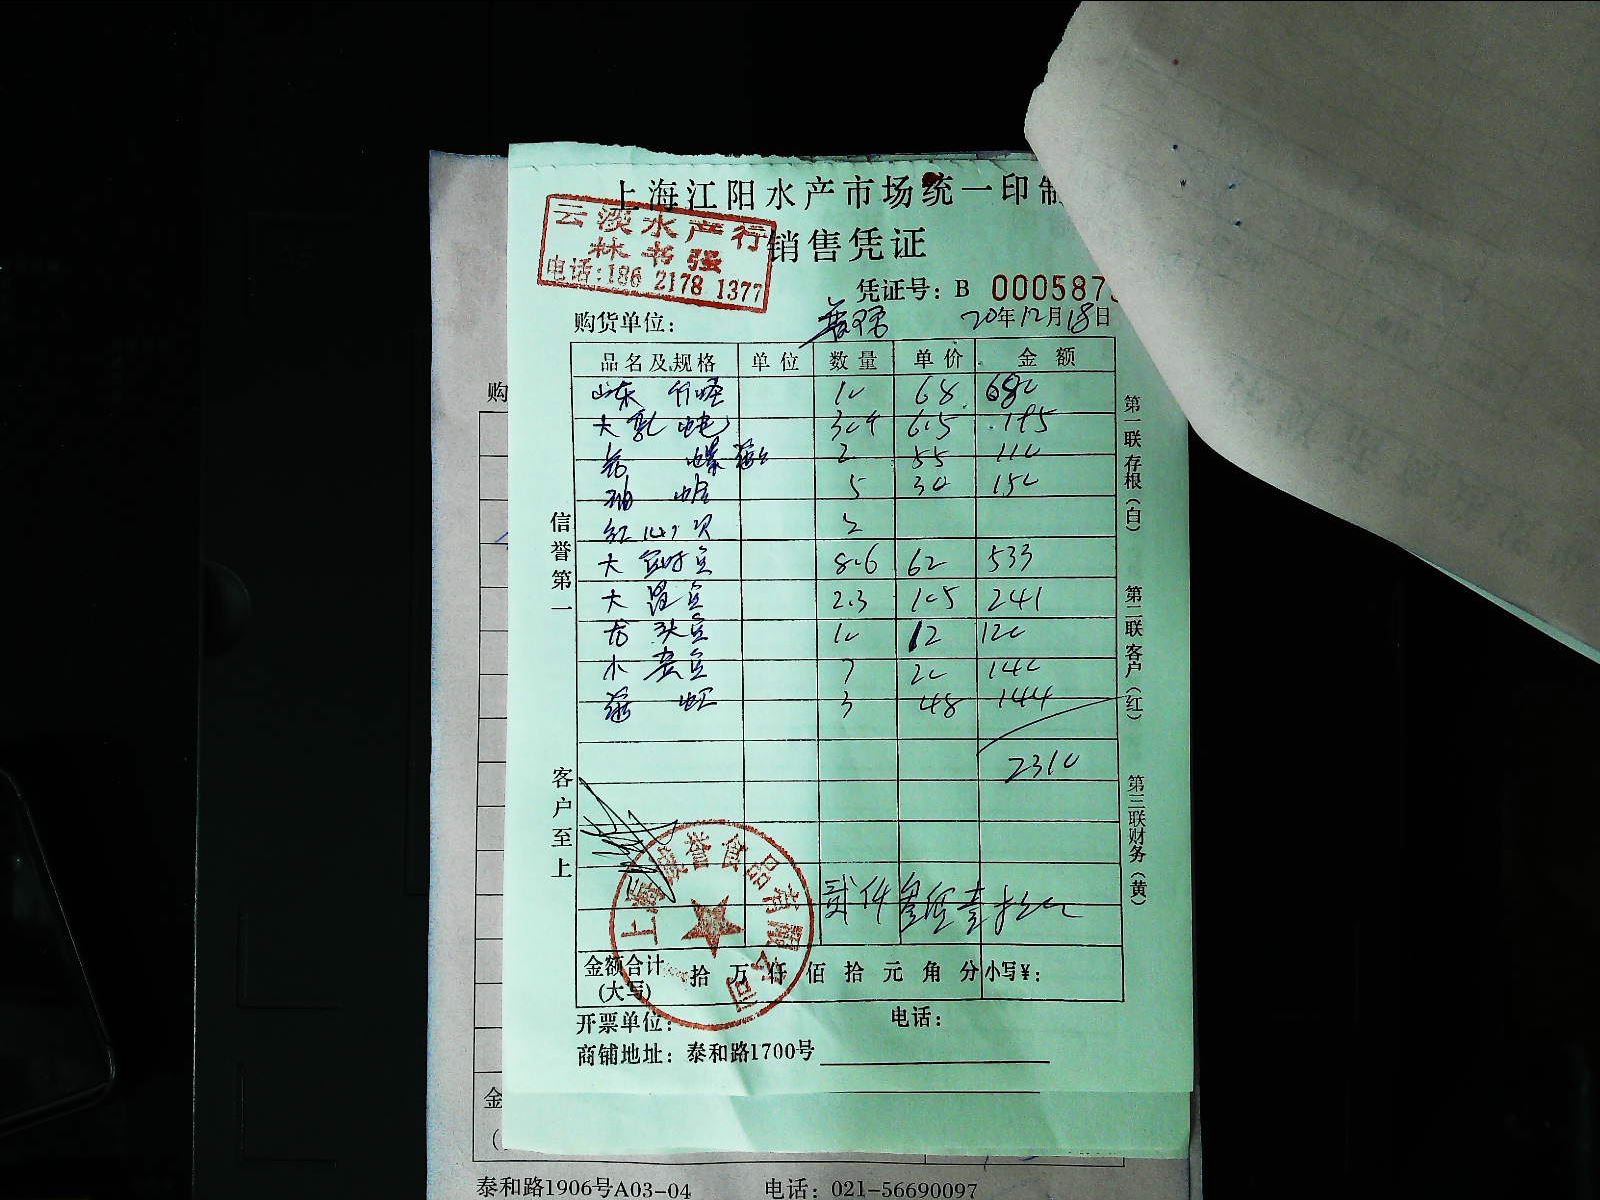 上海江阳水产市场统一印制
云淡水产行
林书强
电话:186 2178 1377
销售凭证
凭证号: B 000587
购货单位:
20年12月18日
品名及规格 单位 数量 单价 金额
山东 10 68 680
大 30.4 6.5 195
螺 2 55 110
5 30 150
红心贝 2
大 8.6 62 533
大 2.3 105 241
龙头 10 12 120
小 7 20 140
3 48 144
2310
贰仟叁佰壹拾
金额合计(大写) 拾 万 仟 佰 拾 元 角 分 小写¥:
开票单位: 电话:
商铺地址: 泰和路1700号
信誉第一
客户至上
第一联 存根(白)
第二联 客户(红)
第三联 财务(黄)
上海诚誉食品有限公司
购
金
泰和路1906号A03-04 电话: 021-56690097